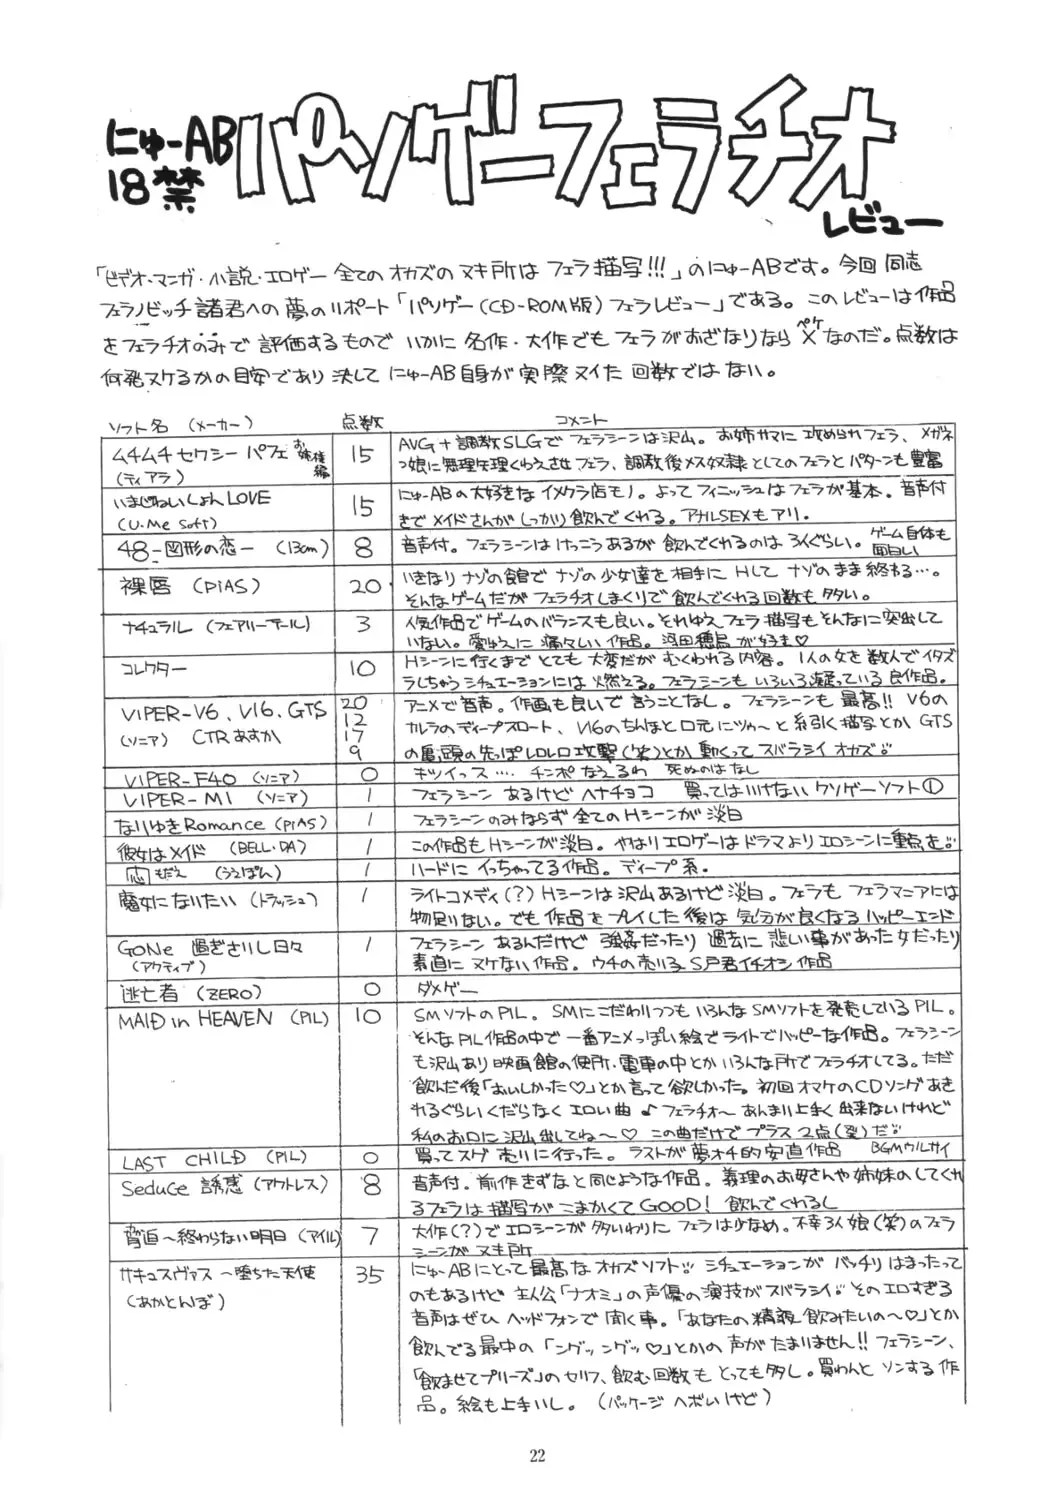 にゅーAB
18禁
パソゲーフェラチオ
レビュー
「ビデオ・マンガ・小説・エロゲー 全てのオカズのヌキ所は フェラ描写!!!」のにゅーABです。今回 同志
フェラノビッチ諸君への夢のリポート「パソゲー(CD-ROM版)フェラレビュー」である。このレビューは作品
をフェラチオのみで評価するもので いかに 名作・大作でも フェラがおざなりなら ペケ
×なのだ。点数は
何発ヌケるかの目安であり 決して にゅーAB自身が実際ヌイた 回数ではない。
ソフト名 (メーカー) 点数 コメント
ムチムチセクシーパフェ お姉様編
(ティアラ)
15
AVG+調教SLGで フェラシーンは沢山。お姉サマに 攻められフェラ、メガネ
っ娘に無理矢理くわえさせフェラ、調教後メス奴隷としてのフェラとパターンも豊富
いまじねいしょんLOVE
(U・Me Soft)
15
にゅーABの大好きな イメクラ店モノ。よって フィニッシュはフェラが基本。音声付
きでメイドさんが しっかり飲んでくれる。アナルSEXもアリ.
48-図形の恋- (13cm)
8
音声付。フェラシーンはけっこうあるが 飲んでくれるのは 3人ぐらい。 ゲーム自体も
面白い
裸唇 (PIAS)
20
いきなり ナゾの館で ナゾの少女達を相手に Hして ナゾのまま終わる…。
そんなゲームだが フェラチオしまくりで 飲んでくれる回数も多い。
ナチュラル (フェアリーテール)
3
人気作品でゲームのバランスも良い。それゆえ フェラ描写もそんなに突出して
いない。愛ゆえに 痛々しい作品。 が好き♡
コレクター
10
Hシーンに行くまで とても 大変だが むくわれる内容。1人の女を数人でイタズ
ラしちゃうシチュエーションには 燃える。フェラシーンも いろいろ凝っている 良作品.
VIPER-V6、V16、GTS
(ソニア) CTRあすか
20
12
17
9
アニメで音声。作画も良いで 言うことなし。フェラシーンも 最高!! V6の
カルラのディープスロート、V16のちんぽと口元にツゥ〜と 糸引く描写とか GTS
の亀頭の先っぽレロレロ攻撃(笑)とか 動くって スバラシイ オカズ!!
VIPER-F40 (ソニア)
0
キツイっス…. チンポ なえるわ 死ぬのはなし
VIPER-M1 (ソニア)
1
フェラシーン あるけど ヘナチョコ 買ってはいけない クソゲーソフト①
なりゆきRomance (PIAS)
1
フェラシーンのみならず 全てのHシーンが 淡白
彼女はメイド (BELL-DA)
1
この作品もHシーンが淡白。やはりエロゲーはドラマよりエロシーンに重点を!!
もだえ (うえぽん)
1
ハードに イっちゃってる作品。ディープ系.
魔女になりたい (トラッシュ)
1
ライトコメディ(?) Hシーンは沢山あるけど 淡白。フェラも フェラマニアには
物足りない。でも 作品をプレイした後は 気分が良くなる ハッピーエンド
GONe 過ぎさりし日々
(アクティブ)
1
フェラシーン あるんだけど 強姦だったり 過去に 悲しい事があった女だったり
素直に ヌケない作品。ウチの売り子 S戸君イチオシ作品
逃亡者 (ZERO)
0
ダメゲー
MAID in HEAVEN (PIL)
10
SMソフトのPIL。SMにこだわりつつも いろんなSMソフトを発売しているPIL。
そんなPIL作品の中で 一番アニメっぽい絵でライトでハッピーな作品。フェラシーン
も沢山あり映画館の便所・電車の中とか いろんな所でフェラチオしてる。ただ
飲んだ後「おいしかった♡」とか言って欲しかった。初回オマケのCDソングあき
れるぐらいくだらなく エロい曲 ♪フェラチオ〜 あんまり上手く 出来ないけれど
私のお口に沢山出してね〜♡ この曲だけで プラス 2点(爆)だ!!
LAST CHILD (PIL)
0
買ってスグ 売りに行った。ラストが夢オチ的 安直作品 BGMウルサイ
Seduce 誘惑 (アウトレス)
8
音声付。前作きずなと同じような作品。義理のお母さんや姉妹のしてくれ
るフェラは描写がこまかくてGOOD! 飲んでくれるし
脅迫〜終わらない明日 (アイル)
7
大作(?)でエロシーンが多いわりに フェラは少なめ。不幸3人娘(笑)のフェラ
シーンが ヌキ所
サキュスヴァス 〜堕ちた天使
(あかとんぼ)
35
にゅーABにとって最高なオカズソフト!! シチュエーションが バッチリ はまったって
のもあるけど 主人公「ナオミ」の声優の演技がスバラシイ!! そのエロすぎる
音声はぜひ ヘッドフォンで 聞く事。「あなたの精液 飲みたいの〜♡」とか
飲んでる最中の「ングッ ングッ♡」とかの声がたまりません!! フェラシーン、
「飲ませてプリーズ」のセリフ、飲む回数も とっても多し。買わんと ソンする作
品。絵も上手いし。 (パッケージ ヘボいけど)
22